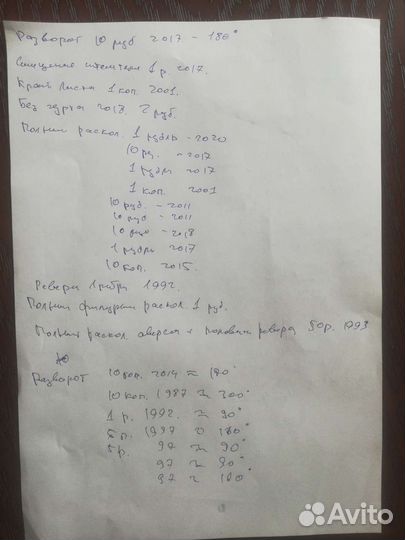 Разворот 10 руб 2017 - 180°
Смещение штемпеля 1 р. 2017.
Край листа 1 коп. 2001.
Без гурта 2018. 2 руб.
Полный раскол. 1 рубль - 2020
10 р. - 2017
1 рубль 2017
1 коп. 2001
10 руб. - 2011
10 руб - 2011
10 руб - 2018
1 рубль 2017
10 коп. 2015.
Реверс 1 рубль 1992.
Полный фигурный раскол. 1 руб.
Полный раскол аверса и половина реверса 50р. 1993
Разворот 10 коп. 2014 ≈ 180°
10 коп. 1987 ≈ 200°
1 р. 1992. ≈ 90°
5 р. 1997 ≈ 180°
5 р. 97 ≈ 90°
97 ≈ 90°
97 ≈ 180°
Avito